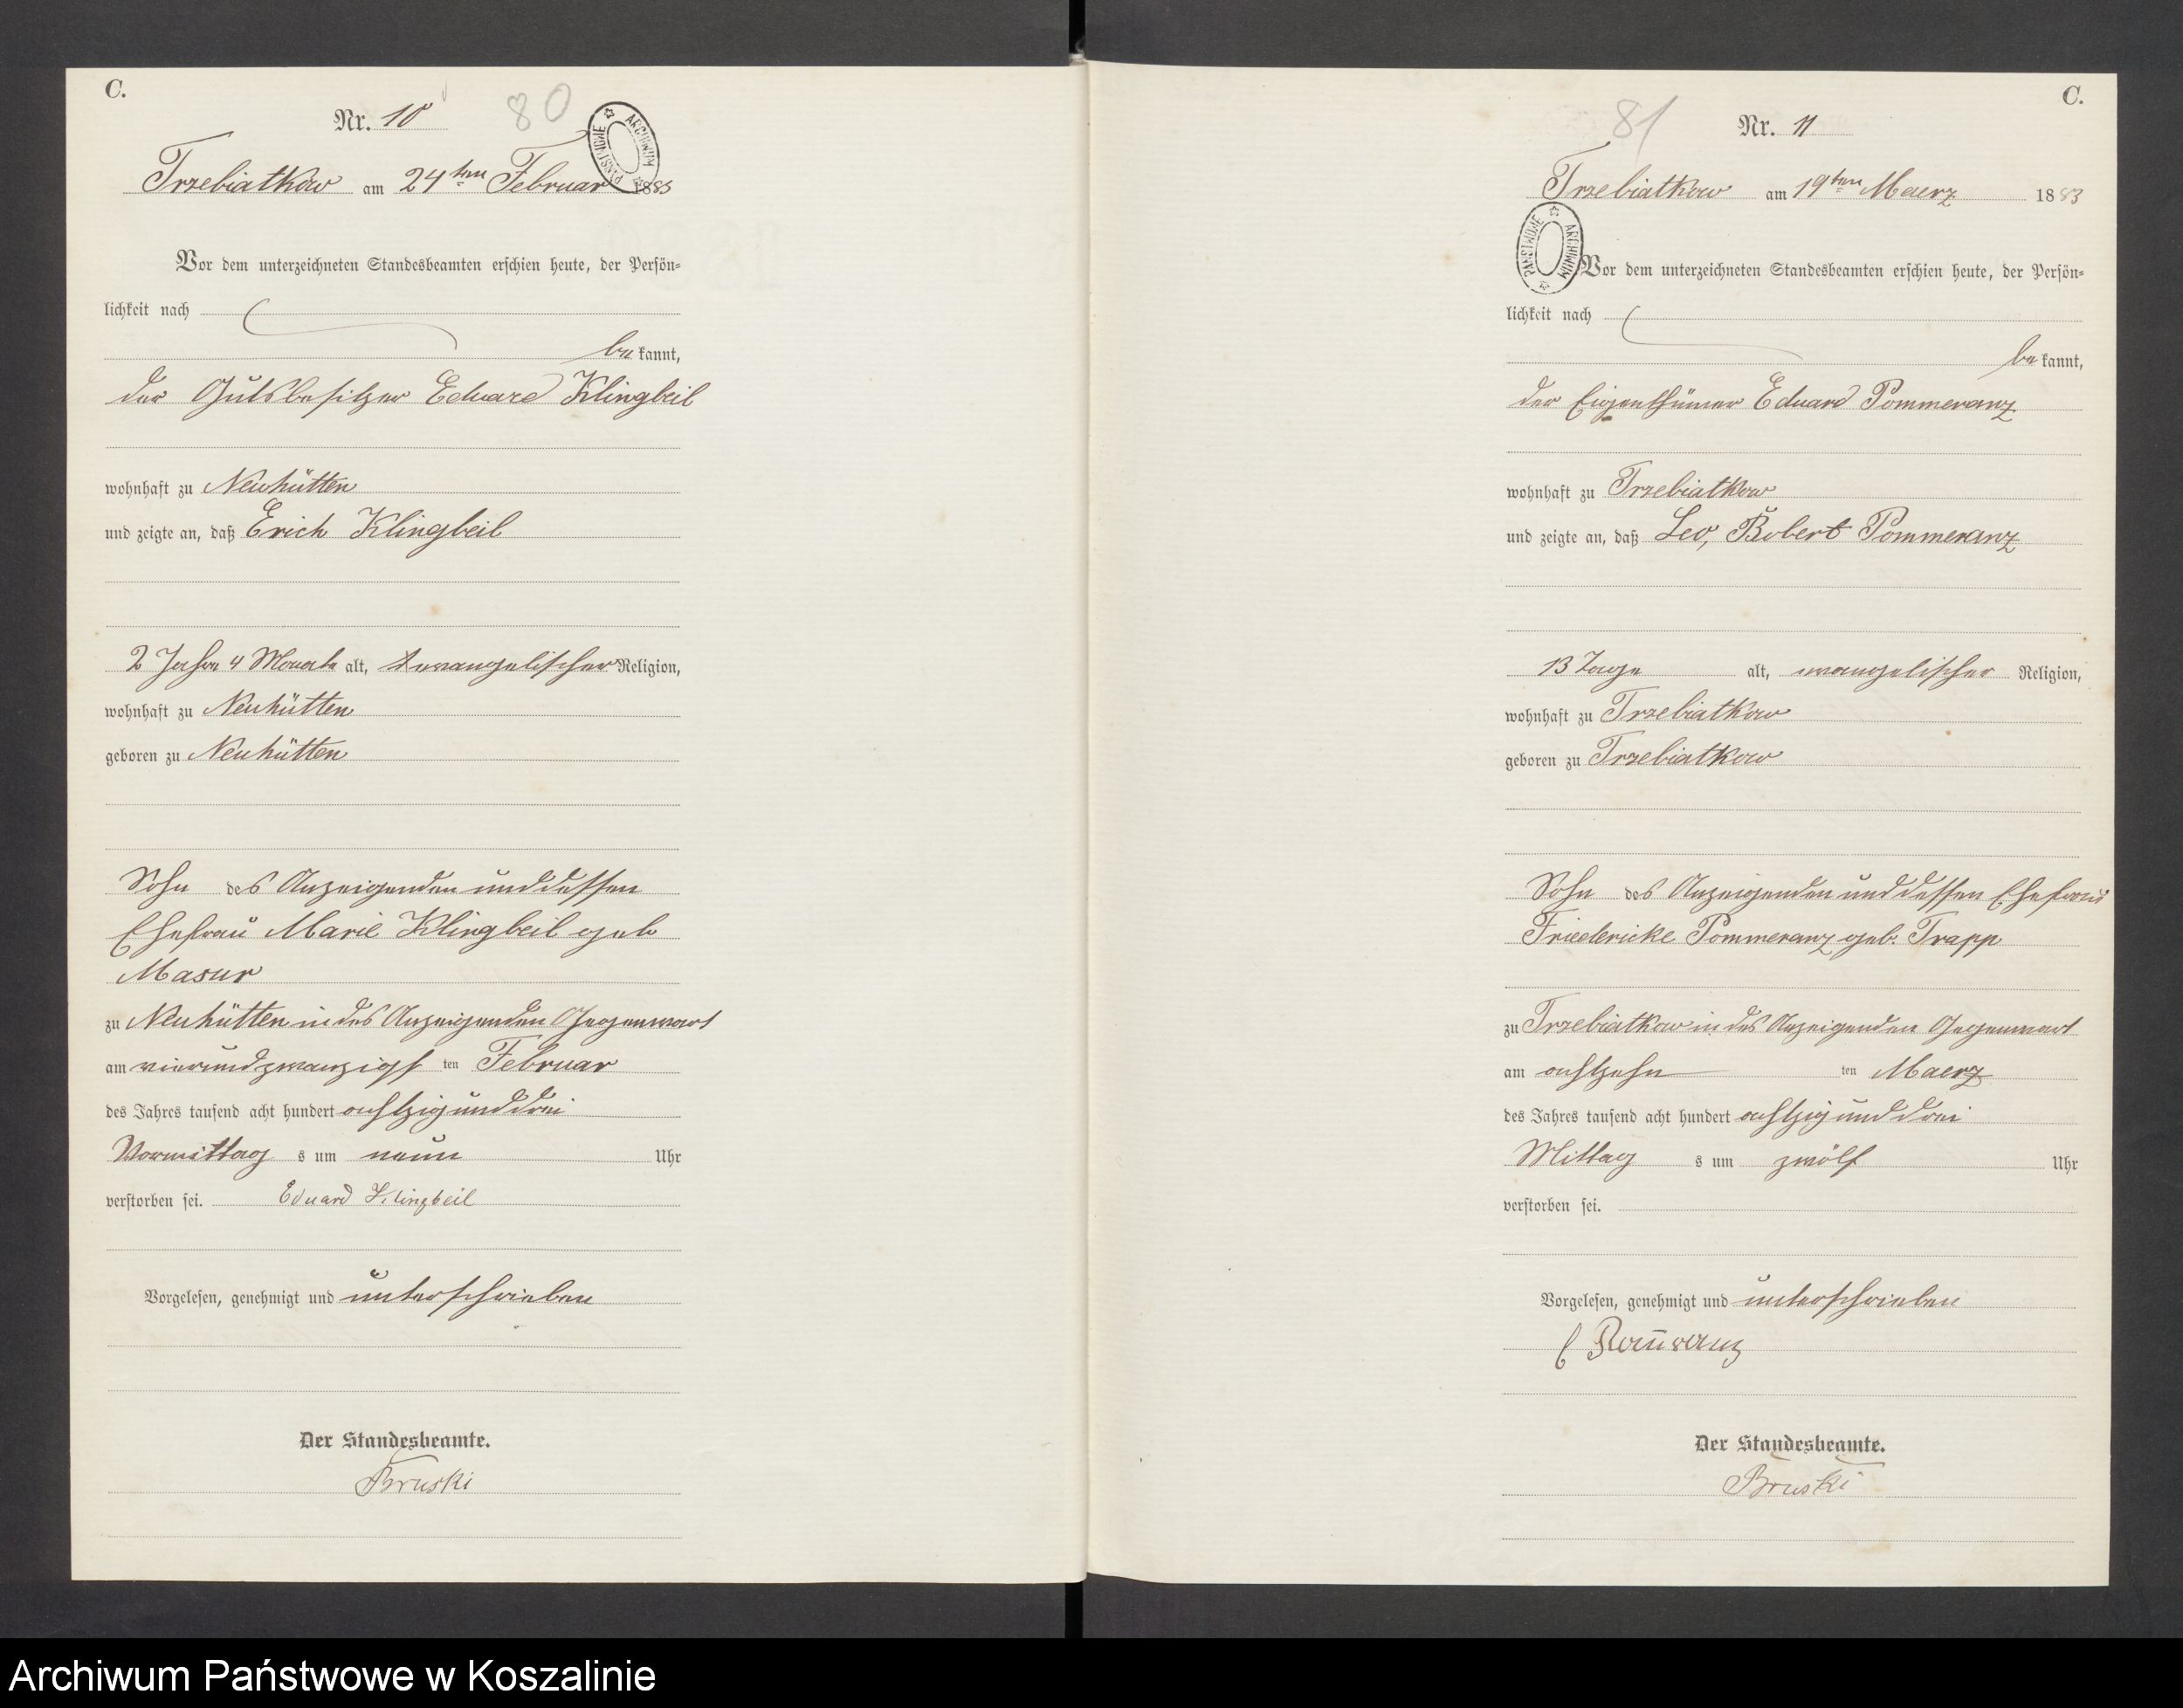 C.
Nr. 10
80
ARCHIWUM PAŃSTWOWE
Trzebiatkow am 24ten Februar 1883
Vor dem unterzeichneten Standesbeamten erschien heute, der Persön-
lichkeit nach
be kannt,
der Gutsbesitzer Eduard Klingbeil
wohnhaft zu Neuhütten
und zeigte an, daß Erich Klingbeil
2 Jahre 4 Monate alt, evangelischer Religion,
wohnhaft zu Neuhütten
geboren zu Neuhütten
Sohn des Anzeigenden und dessen
Ehefrau Marie Klingbeil geb
Masur
zu Neuhütten in des Anzeigenden Gegenwart
am vierundzwanzigsten Februar
des Jahres tausend acht hundert achtzig und drei
Vormittag s um neun Uhr
verstorben sei. Eduard Klingbeil
Vorgelesen, genehmigt und unterschrieben
Der Standesbeamte.
Bruski
C.
81
Nr. 11
Trzebiatkow am 19ten Maerz 1883
ARCHIWUM PAŃSTWOWE
Vor dem unterzeichneten Standesbeamten erschien heute, der Persön-
lichkeit nach
be kannt,
der Eigenthümer Eduard Pommeranz
wohnhaft zu Trzebiatkow
und zeigte an, daß Leo, Robert Pommeranz
13 Tage alt, evangelischer Religion,
wohnhaft zu Trzebiatkow
geboren zu Trzebiatkow
Sohn des Anzeigenden und dessen Ehefrau
Friedericke Pommeranz geb. Trapp
zu Trzebiatkow in des Anzeigenden Gegenwart
am achtzehn ten Maerz
des Jahres tausend acht hundert achtzig und drei
Mittag s um zwölf Uhr
verstorben sei.
Vorgelesen, genehmigt und unterschrieben
E Pom̄eranz
Der Standesbeamte.
Bruski
Archiwum Państwowe w Koszalinie